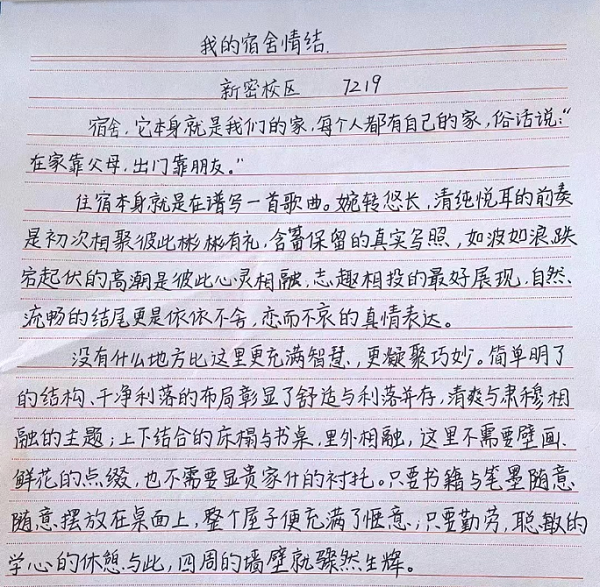 我的宿舍情结.
新密校区 7219
宿舍,它本身就是我们的家,每个人都有自己的家,俗话说:“
在家靠父母,出门靠朋友。”
住宿本身就是在谱写一首歌曲。婉转悠长,清纯悦耳的前奏
是初次相聚彼此彬彬有礼,含蓄保留的真实写照,如波如浪跌
宕起伏的高潮是彼此心灵相融,志趣相投的最好展现,自然、
流畅的结尾更是依依不舍,恋而不哀的真情表达。
没有什么地方比这里更充满智慧,更凝聚巧妙。简单明了
的结构、干净利落的布局彰显了舒适与利落并存,清爽与肃穆相
融的主题;上下结合的床榻与书桌,里外相融,这里不需要壁画、
鲜花的点缀,也不需要显贵家什的衬托。只要书籍与笔墨随意
随意摆放在桌面上,整个屋子便充满了惬意;只要勤劳,聪敏的
学心的休憩与此,四周的墙壁就骤然生辉。